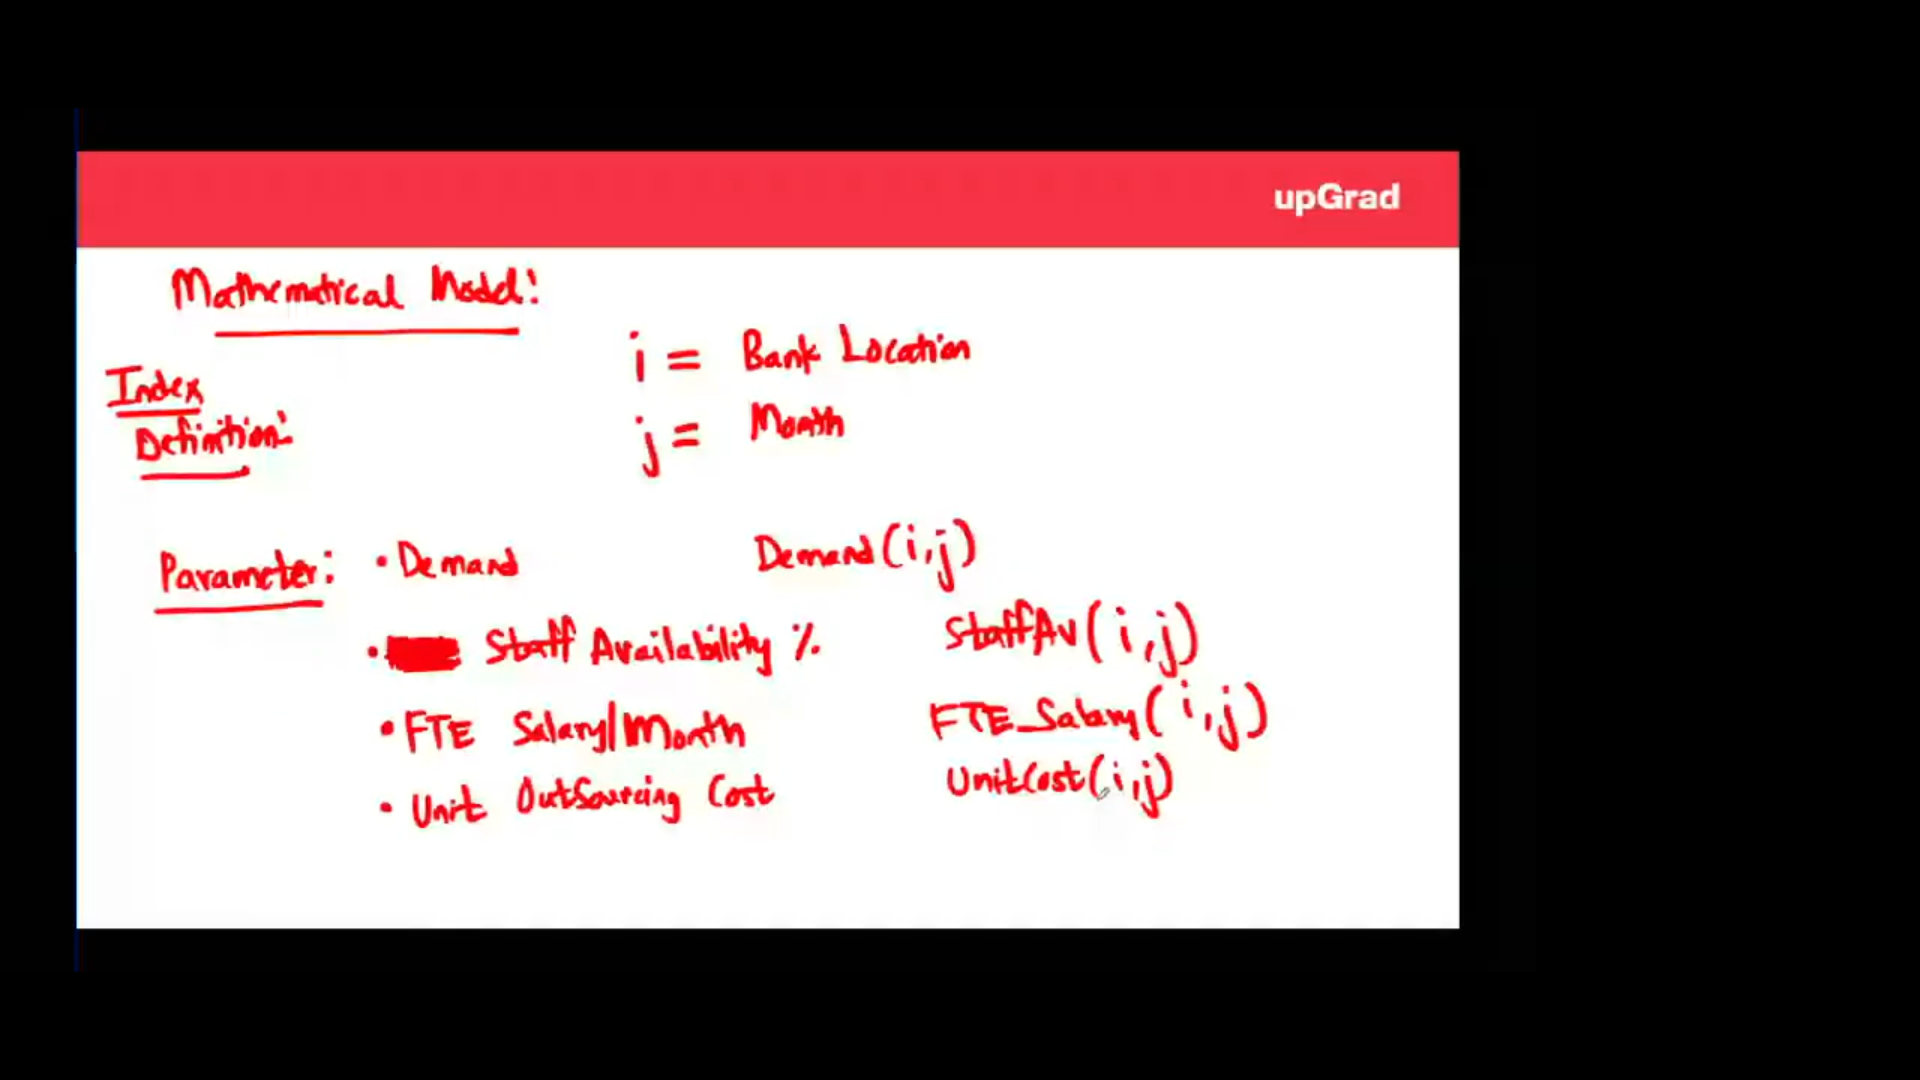 upGrad
Mathematical Model:
i = Bank Location
Index
Definition:
j = Month
Parameter: • Demand Demand(i,j)
• Staff Availability % StaffAv(i,j)
• FTE Salary/Month FTE_Salary(i,j)
• Unit OutSourcing Cost UnitCost(i,j)